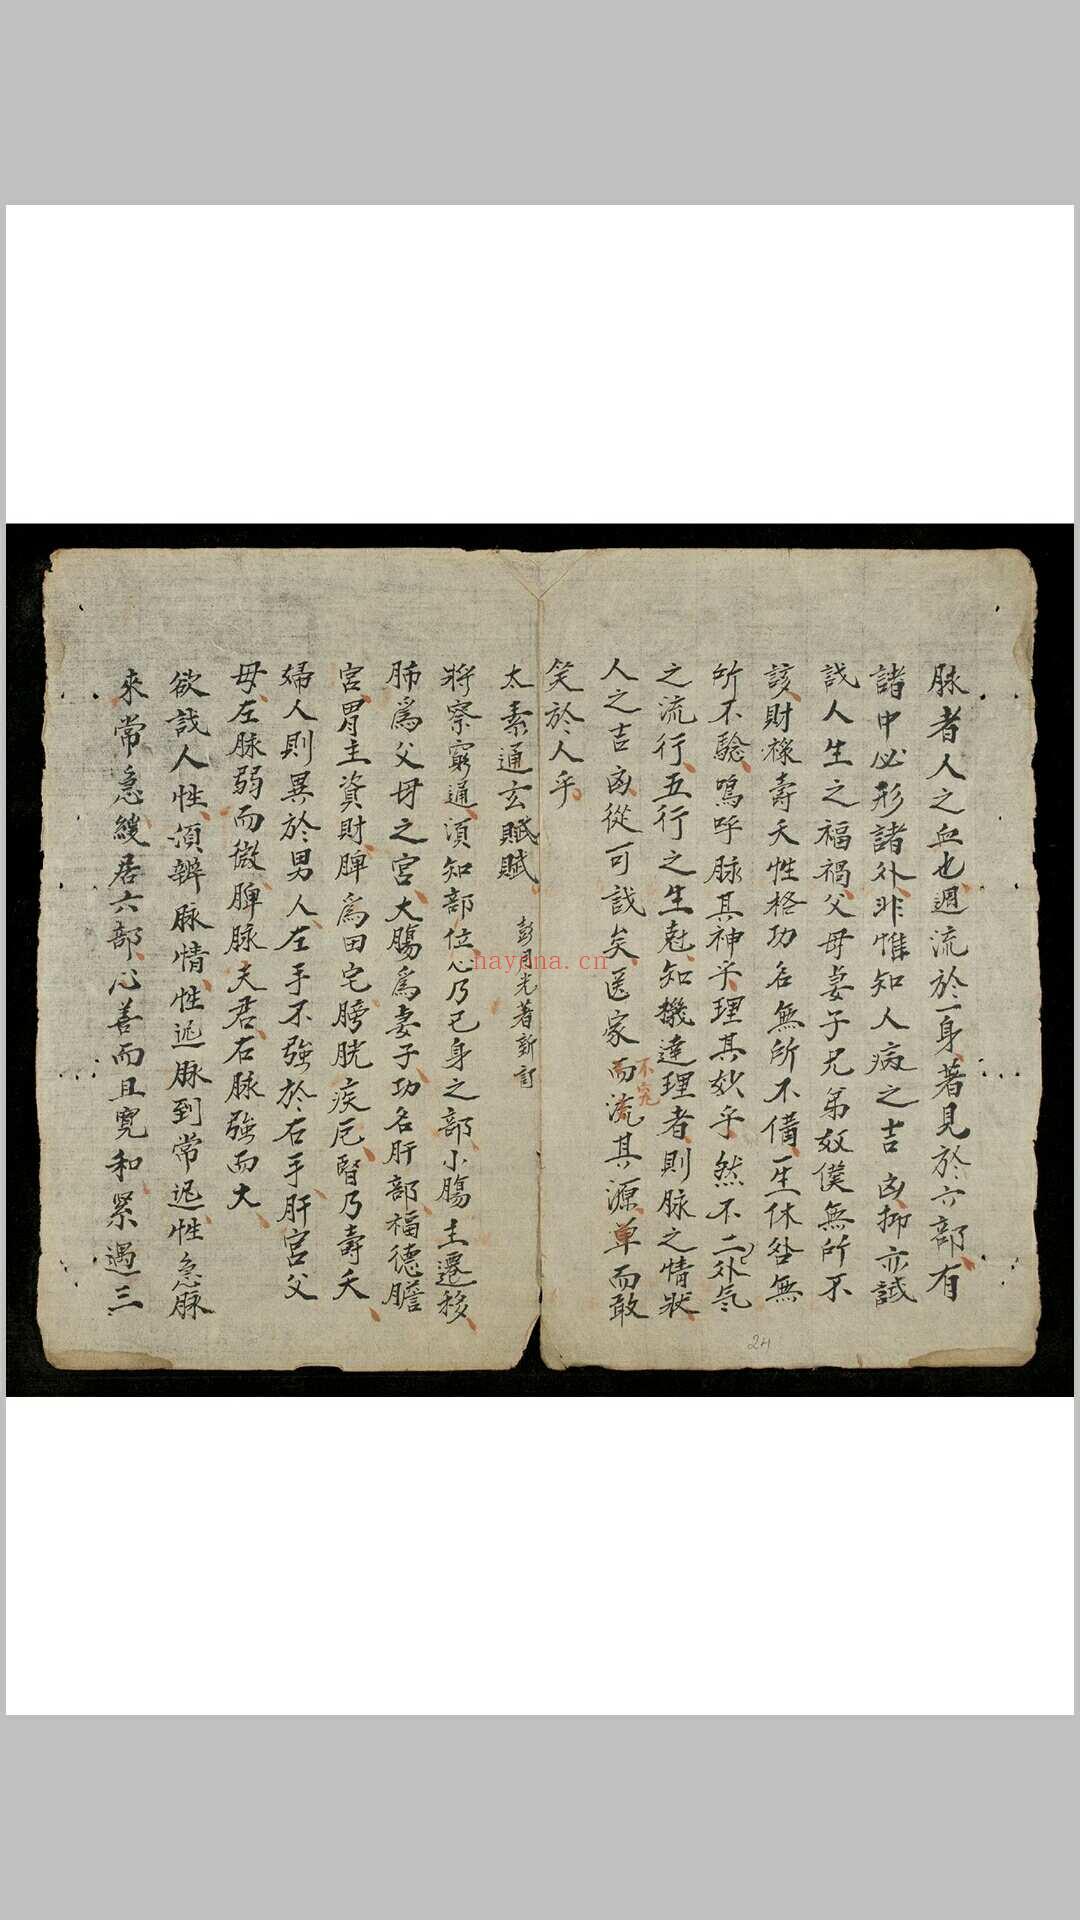 脉者人之血也週流於一身著見於六部有
諸中必形諸外非惟知人病之吉凶抑亦識
識人生之福禍父母妻子兄弟奴僕無所不
該財祿壽夭性格功名無所不備一生休咎無
所不驗嗚呼脉其神乎理其妙乎然不二外氣
之流行五行之生尅知機達理者則脉之情狀
人之吉凶從可識矣医家而不究流其源单而敢
笑於人乎
太素通玄賦賦
彭月光著新訂
將察窮通須知部位心乃己身之部小腸主遷移
肺爲父母之宮大腸爲妻子功名肝部福德膽
宮胃主資財脾爲田宅膀胱疾厄腎乃壽夭
婦人則異於男人左手不強於右手肝宮父
母左脉弱而微脾脉夫君右脉強而大
欲識人性須辨脉情性迟脉到常迟性急脉
來常急緩居六部心善而且寬和緊過三
2H
nayona.cn